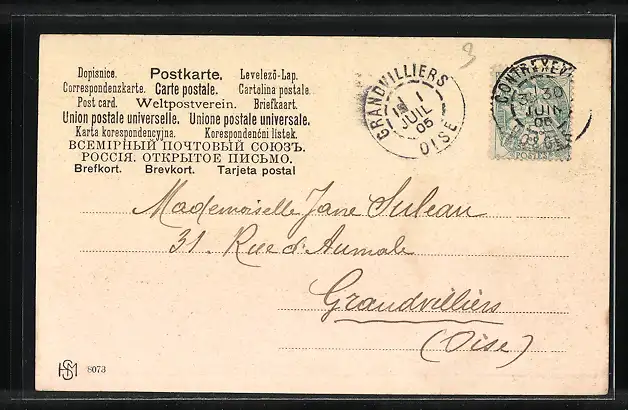 Dopisnice. Postkarte. Levelező-Lap.
Correspondenzkarte. Carte postale. Cartolina postale.
Post card. Weltpostverein. Briefkaart.
Union postale universelle. Unione postale universale.
Karta korespondencyjna. Korespondenční listek.
ВСЕМІРНЫЙ ПОЧТОВЫЙ СОЮЗЪ.
РОССІЯ. ОТКРЫТОЕ ПИСЬМО.
Brefkort. Brevkort. Tarjeta postal
3
GRANDVILLIERS
1
JUIL
05
OISE
CONTREXEV
30
JUIN
05
VOSGES
POSTES
Mademoiselle Jane Suleau
31. Rue d'Aumale
Grandvilliers
(Oise)
HSM 8073